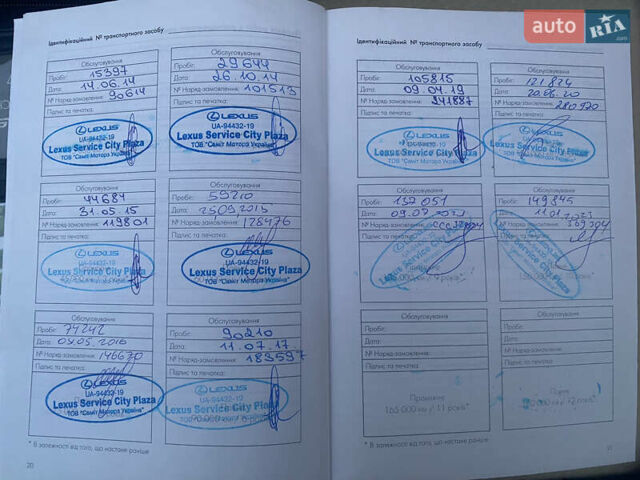 auto RIA.com
Ідентифікаційний № транспортного засобу
Обслуговування
Пробіг: 15397
Дата: 14.06.14
№ Наряд-замовлення: 90614
Підпис та печатка:
LEXUS
UA-94432-19
Lexus Service City Plaza
ТОВ "Саміт Моторз Україна"
Обслуговування
Пробіг: 29644
Дата: 26.10.14
№ Наряд-замовлення: 101513
Підпис та печатка:
LEXUS
UA-94432-19
Lexus Service City Plaza
ТОВ "Саміт Моторз Україна"
Обслуговування
Пробіг: 44684
Дата: 31.05.15
№ Наряд-замовлення: 119801
Підпис та печатка:
LEXUS
UA-94432-19
Lexus Service City Plaza
Обслуговування
Пробіг: 59210
Дата: 25092015
№ Наряд-замовлення: 128476
Підпис та печатка:
LEXUS
UA-94432-19
Lexus Service City Plaza
ТОВ "Саміт Моторз Україна"
Обслуговування
Пробіг: 74242
Дата: 05.2016
№ Наряд-замовлення: 146670
Підпис та печатка:
LEXUS
UA-94432-19
Lexus Service City Plaza
ТОВ "Саміт Моторз Україна"
Обслуговування
Пробіг: 90210
Дата: 11.07.17
№ Наряд-замовлення: 183597
Підпис та печатка:
LEXUS
UA-94432-19
Lexus Service City Plaza
* В залежності від того, що настане раніше
20
Ідентифікаційний № транспортного засобу
Обслуговування
Пробіг: 105815
Дата: 09.04.19
№ Наряд-замовлення: 241887
Підпис та печатка:
LEXUS
UA-94432-19
Lexus Service City Plaza
ТОВ "Саміт Моторз Україна"
Обслуговування
Пробіг: 121874
Дата: 20.05.20
№ Наряд-замовлення: 280920
Підпис та печатка:
LEXUS
Lexus Service City Plaza
Обслуговування
Пробіг: 137051
Дата: 09.07
№ Наряд-замовлення:
Підпис та печатка:
Lexus Service City Plaza
Обслуговування
Пробіг: 149845
Дата: 11.01.2023
№ Наряд-замовлення: 369204
Підпис та печатка:
Обслуговування
Пробіг:
Дата:
№ Наряд-замовлення:
Підпис та печатка:
165 000 км / 11 років*
Обслуговування
Пробіг:
Дата:
№ Наряд-замовлення:
Підпис та печатка:
* В залежності від того, що настане раніше